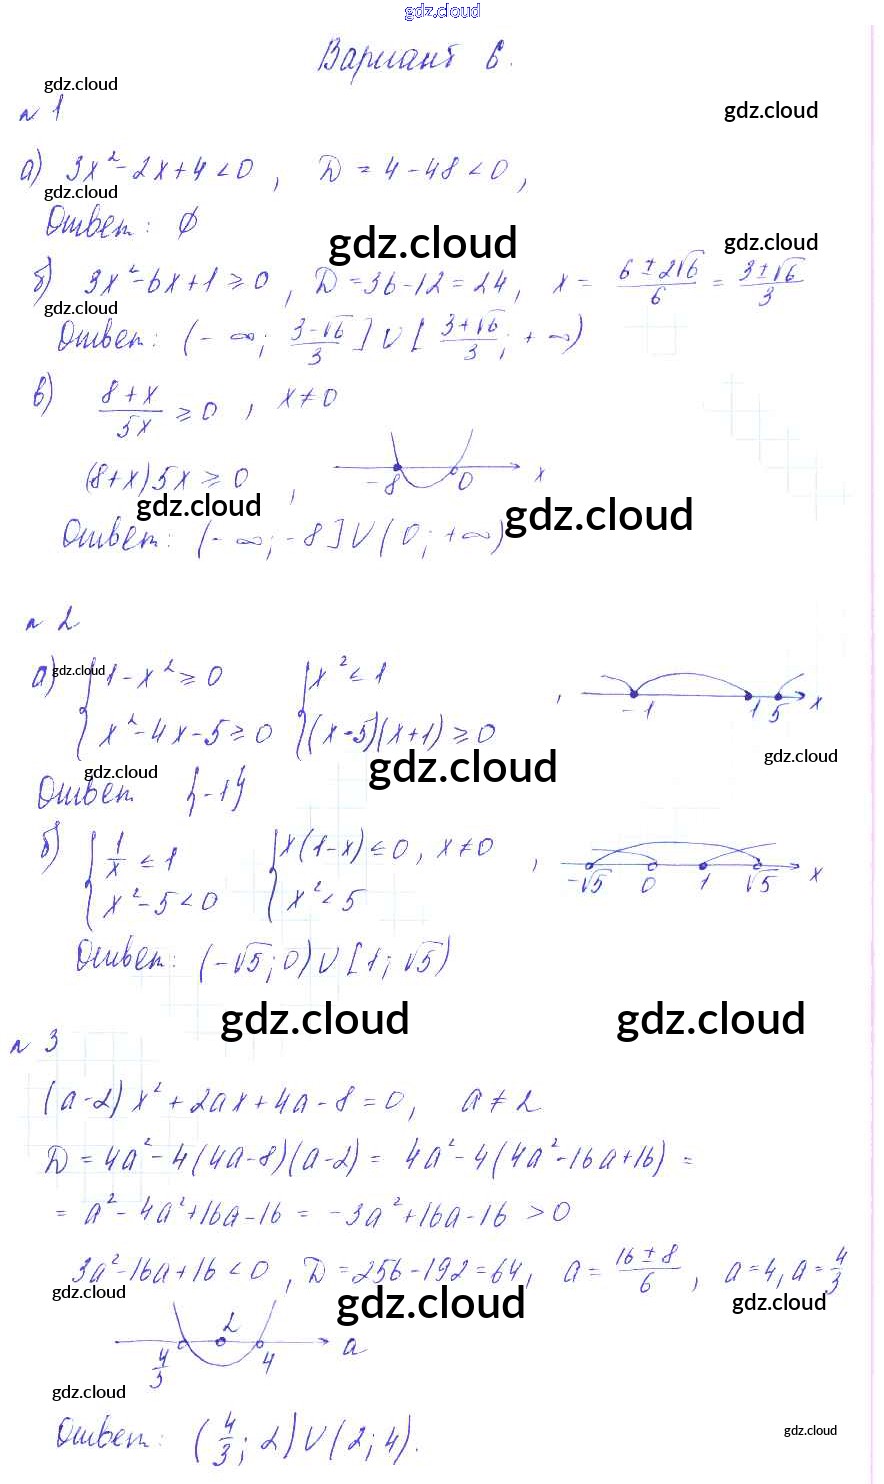 gdz.cloud
Вариант 6.
gdz.cloud
№ 1
gdz.cloud
а) 3x² - 2x + 4 < 0 , D = 4 - 48 < 0 ,
gdz.cloud
Ответ: ∅
gdz.cloud gdz.cloud
б) 3x² - 6x + 1 ≥ 0 , D = 36 - 12 = 24 , x = (6 ± 2√6)/6 = (3 ± √6)/3
gdz.cloud
Ответ: (-∞; (3-√6)/3] ∪ [(3+√6)/3; +∞)
в) (8+x)/(5x) ≥ 0 , x ≠ 0
(8+x)5x ≥ 0 , -8 0 x
gdz.cloud gdz.cloud
Ответ: (-∞; -8] ∪ (0; +∞)
№ 2
а) { 1 - x² ≥ 0 { x² ≤ 1
gdz.cloud
x² - 4x - 5 ≥ 0 (x-5)(x+1) ≥ 0 , -1 1 5 x
gdz.cloud gdz.cloud gdz.cloud
Ответ {-1}
б) { 1/x ≤ 1 { x(1-x) ≤ 0, x ≠ 0
x² - 5 < 0 x² < 5 , -√5 0 1 √5 x
Ответ: (-√5; 0) ∪ [1; √5)
gdz.cloud gdz.cloud
№ 3
(a-2)x² + 2ax + 4a - 8 = 0, a ≠ 2
D = 4a² - 4(4a-8)(a-2) = 4a² - 4(4a² - 16a + 16) =
= a² - 4a² + 16a - 16 = -3a² + 16a - 16 > 0
3a² - 16a + 16 < 0 , D = 256 - 192 = 64, a = (16 ± 8)/6 , a = 4, a = 4/3
gdz.cloud gdz.cloud gdz.cloud
4/3 2 4 a
gdz.cloud
Ответ: (4/3; 2) ∪ (2; 4).
gdz.cloud